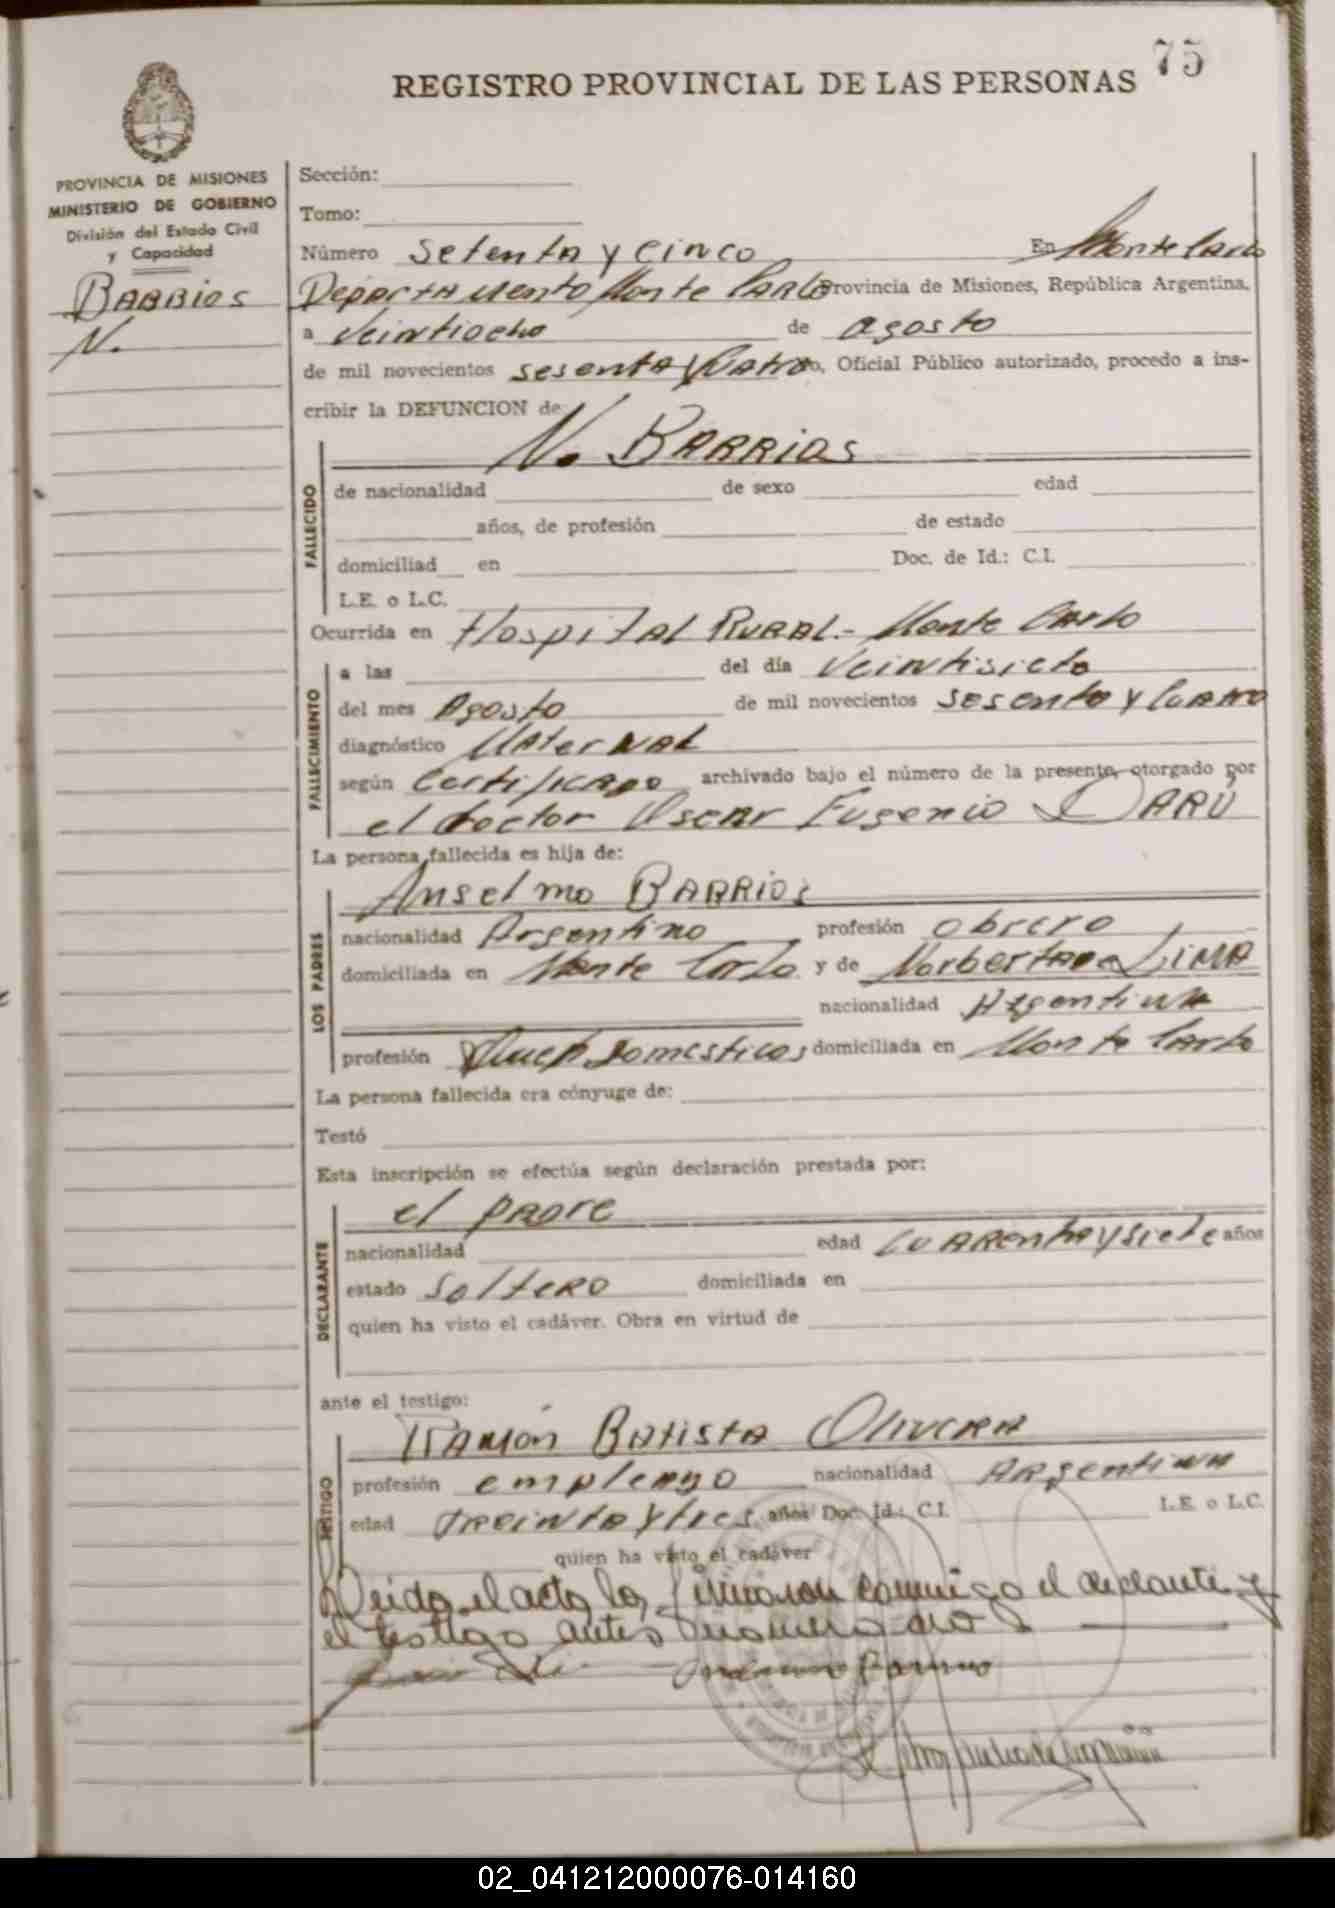 75
REGISTRO PROVINCIAL DE LAS PERSONAS
PROVINCIA DE MISIONES
MINISTERIO DE GOBIERNO
División del Estado Civil
y Capacidad
BARRIOS
N.
Sección:
Tomo:
Número Setenta y Cinco En Monte Carlo
Departamento Monte Carlo Provincia de Misiones, República Argentina,
a Veintiocho de agosto
de mil novecientos sesenta y Cuatro, Oficial Público autorizado, procedo a ins-
cribir la DEFUNCION de
N. BARRIOS
FALLECIDO
de nacionalidad de sexo edad
años, de profesión de estado
domiciliad en Doc. de Id.: C.I.
L.E. o L.C.
Ocurrida en Hospital RURAL.- Monte Carlo
FALLECIMIENTO
a las del día Veintisiete
del mes Agosto de mil novecientos sesenta y Cuatro
diagnóstico Mater NAL
según Certificado archivado bajo el número de la presente, otorgado por
el doctor Oscar Eugenio DARÚ
La persona fallecida es hija de:
LOS PADRES
Anselmo BARRIOS
nacionalidad Argentino profesión obrero
domiciliada en Monte Carlo y de Norberta LIMA
nacionalidad Argentina
profesión Queh. domesticos domiciliada en Monte Carlo
La persona fallecida era cónyuge de:
Testó
Esta inscripción se efectúa según declaración prestada por:
DECLARANTE
el padre
nacionalidad edad CUARENTA y siete años
estado Soltero domiciliada en
quien ha visto el cadáver. Obra en virtud de
ante el testigo:
TESTIGO
Ramón Batista Olivera
profesión empleado nacionalidad Argentina
edad treinta y tres años Doc. Id.: C.I. L.E. o L.C.
quien ha visto el cadáver
Leida el acta la firmaron conmigo el declarante y
el testigo antes
02_041212000076-014160